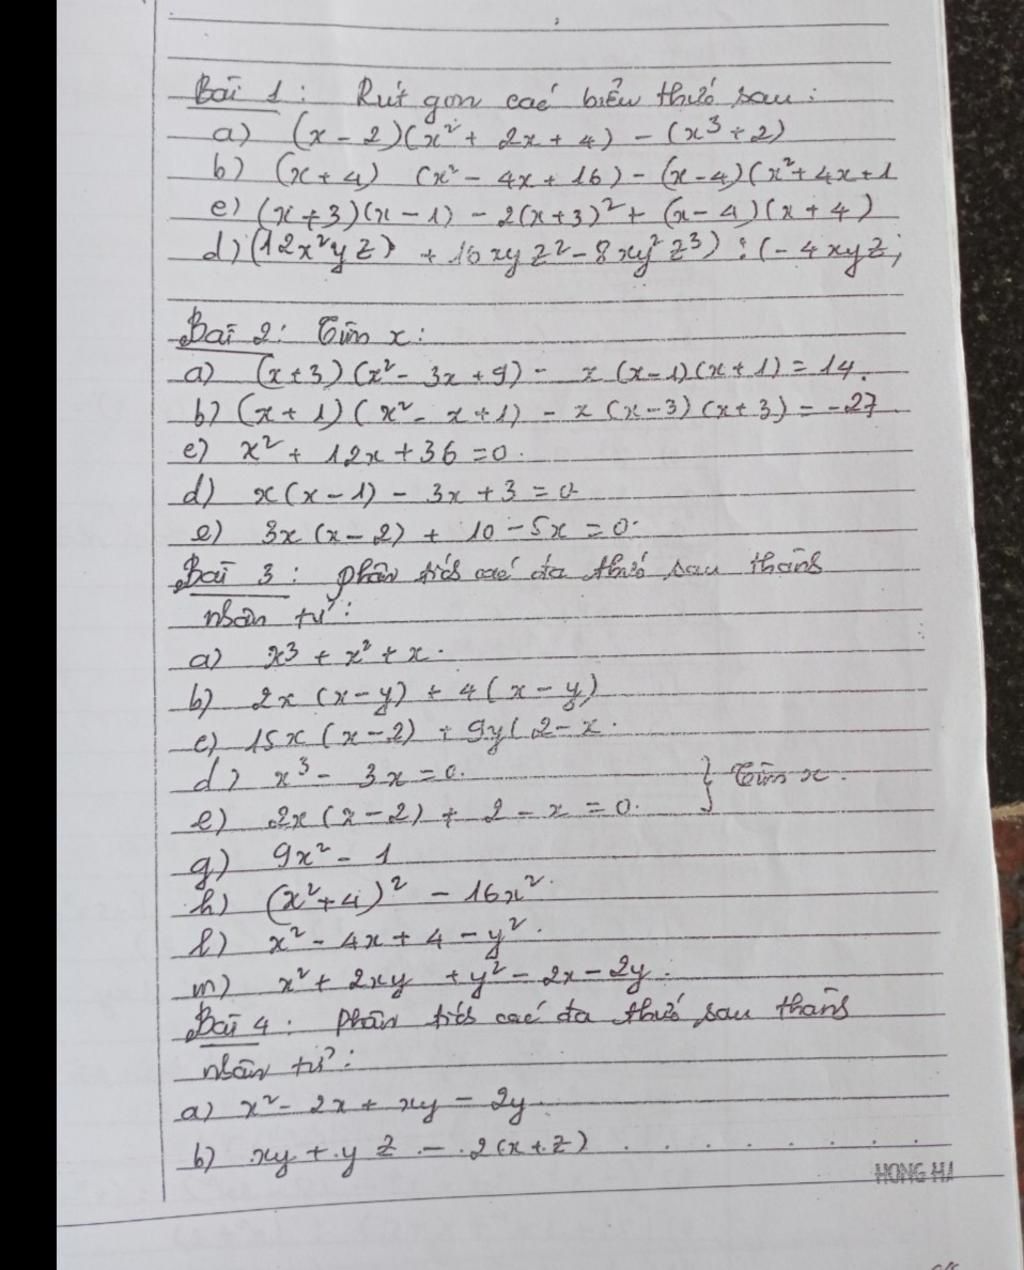 Bài 1: Rút gọn các biểu thức sau:
a) (x - 2)(x² + 2x + 4) - (x³ + 2)
b) (x + 4) (x² - 4x + 16) - (x - 4)(x² + 4x + 1
c) (x + 3)(x - 1) - 2(x + 3)² + (x - 4)(x + 4)
d) (12x²yz) + 16xyz² - 8xy²z³) : (- 4xyz)
Bài 2: Tìm x:
a) (x + 3)(x² - 3x + 9) - x(x - 1)(x + 1) = 14.
b) (x + 1)(x² - x + 1) - x(x - 3)(x + 3) = -27
c) x² + 12x + 36 = 0.
d) x(x - 1) - 3x + 3 = 0
e) 3x(x - 2) + 10 - 5x = 0.
Bài 3: phân tích các đa thức sau thành
nhân tử:
a) x³ + x² + x.
b) 2x(x - y) + 4(x - y)
c) 15x(x - 2) + 9y(2 - x.
d) x³ - 3x = 0. } Tìm x.
e) 2x(x - 2) + 2 - x = 0.
g) 9x² - 1
h) (x² + 4)² - 16x².
l) x² - 4x + 4 - y².
m) x² + 2xy + y² - 2x - 2y.
Bài 4: phân tích các đa thức sau thành
nhân tử:
a) x² - 2x + xy - 2y.
b) xy + yz - 2(x + z)
HONG HA